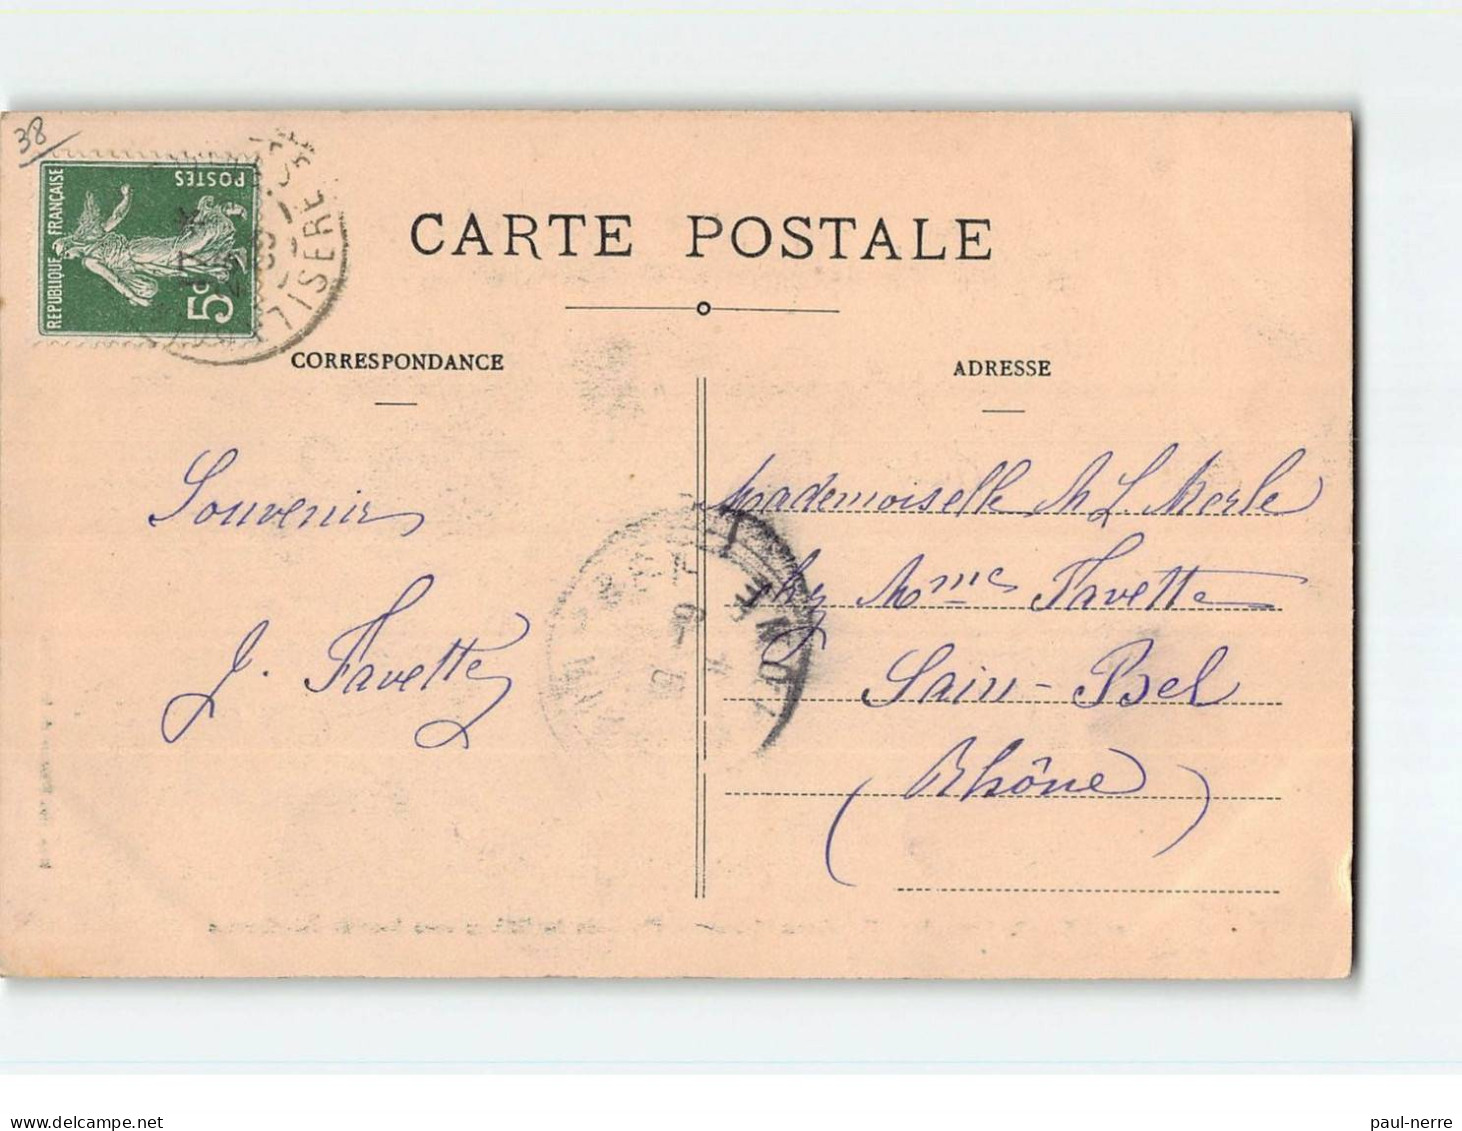 38
RÉPUBLIQUE FRANÇAISE
POSTES
5c
ISÈRE
CARTE POSTALE
CORRESPONDANCE
ADRESSE
Souvenir
J. Favette
Mademoiselle M L. Merle
chez Mme Favette
Sain-Bel
(Rhône)
RHÔNE
paul-nerre